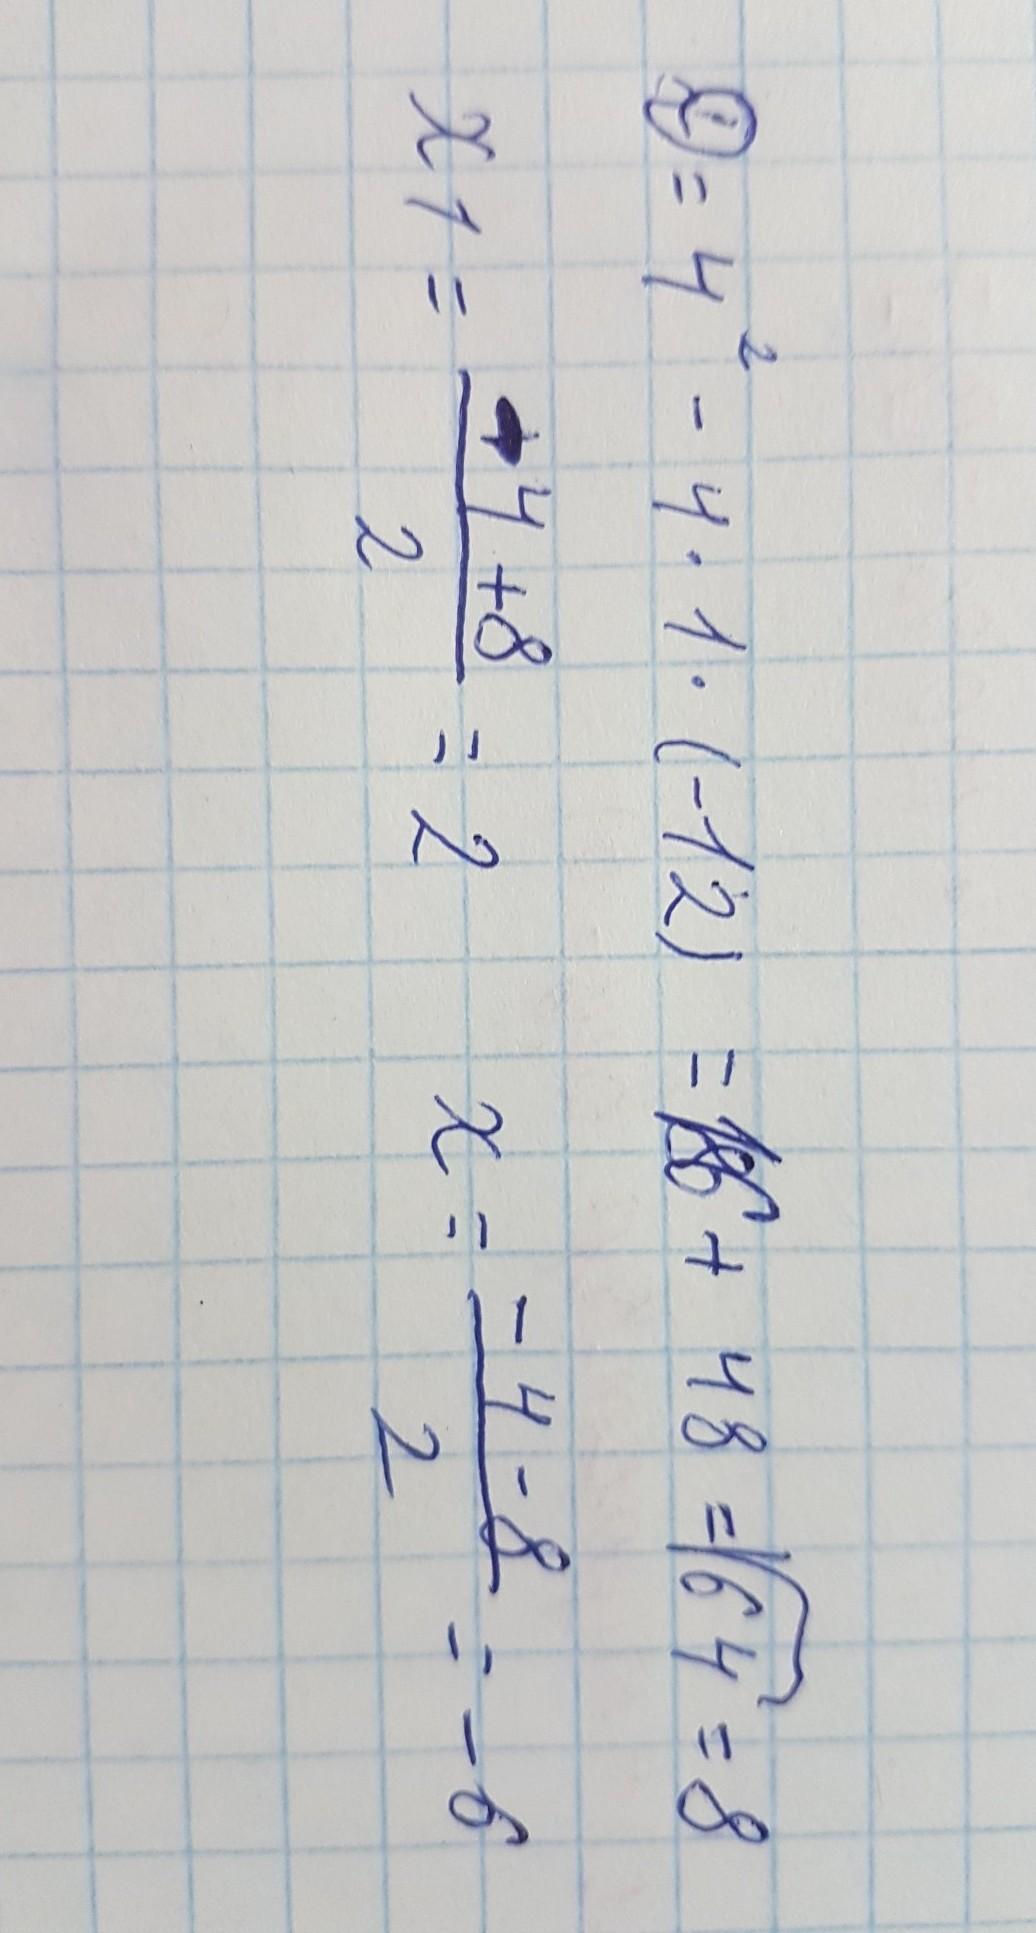 D = 4² - 4 · 1 · (-12) = 16 + 48 = √64 = 8
x1 = (-4 + 8)/2 = 2    x = (-4 - 8)/2 = -6